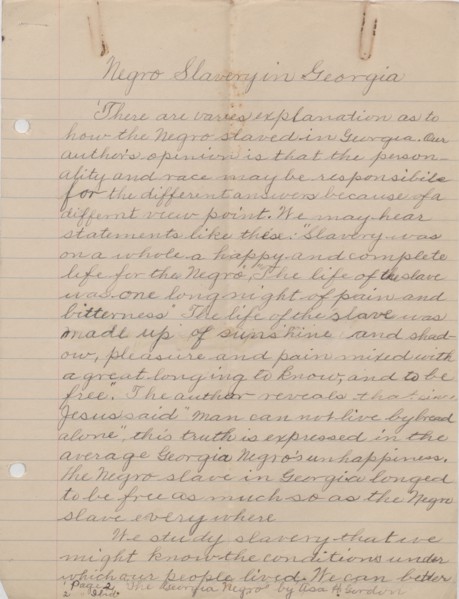 Negro Slavery in Georgia
"There are varies explanation as to
how the Negro slaved in Georgia. Our
author's opinion is that the person-
ality and race may be responsibile
for the different answers because of a
differnt view point. We may hear
statements like these: "Slavery was
on a whole a happy and complete
life for the Negro", "The life of the slave
was one long night of pain and
bitterness" The life of the slave was
made up of sunshine and shad-
ow, pleasure and pain mixed with
a great longing to know, and to be
free". The author reveals that
Jesus said "man can not live by bread
alone", this truth is expressed in the
average Georgia Negro's unhappiness.
The Negro slave in Georgia longed
to be free as much so as the Negro
slave everywhere
We study slavery that we
might know the conditions under
which our people lived. We can better
Page 2 The Georgia Negro by Asa H. Gordon